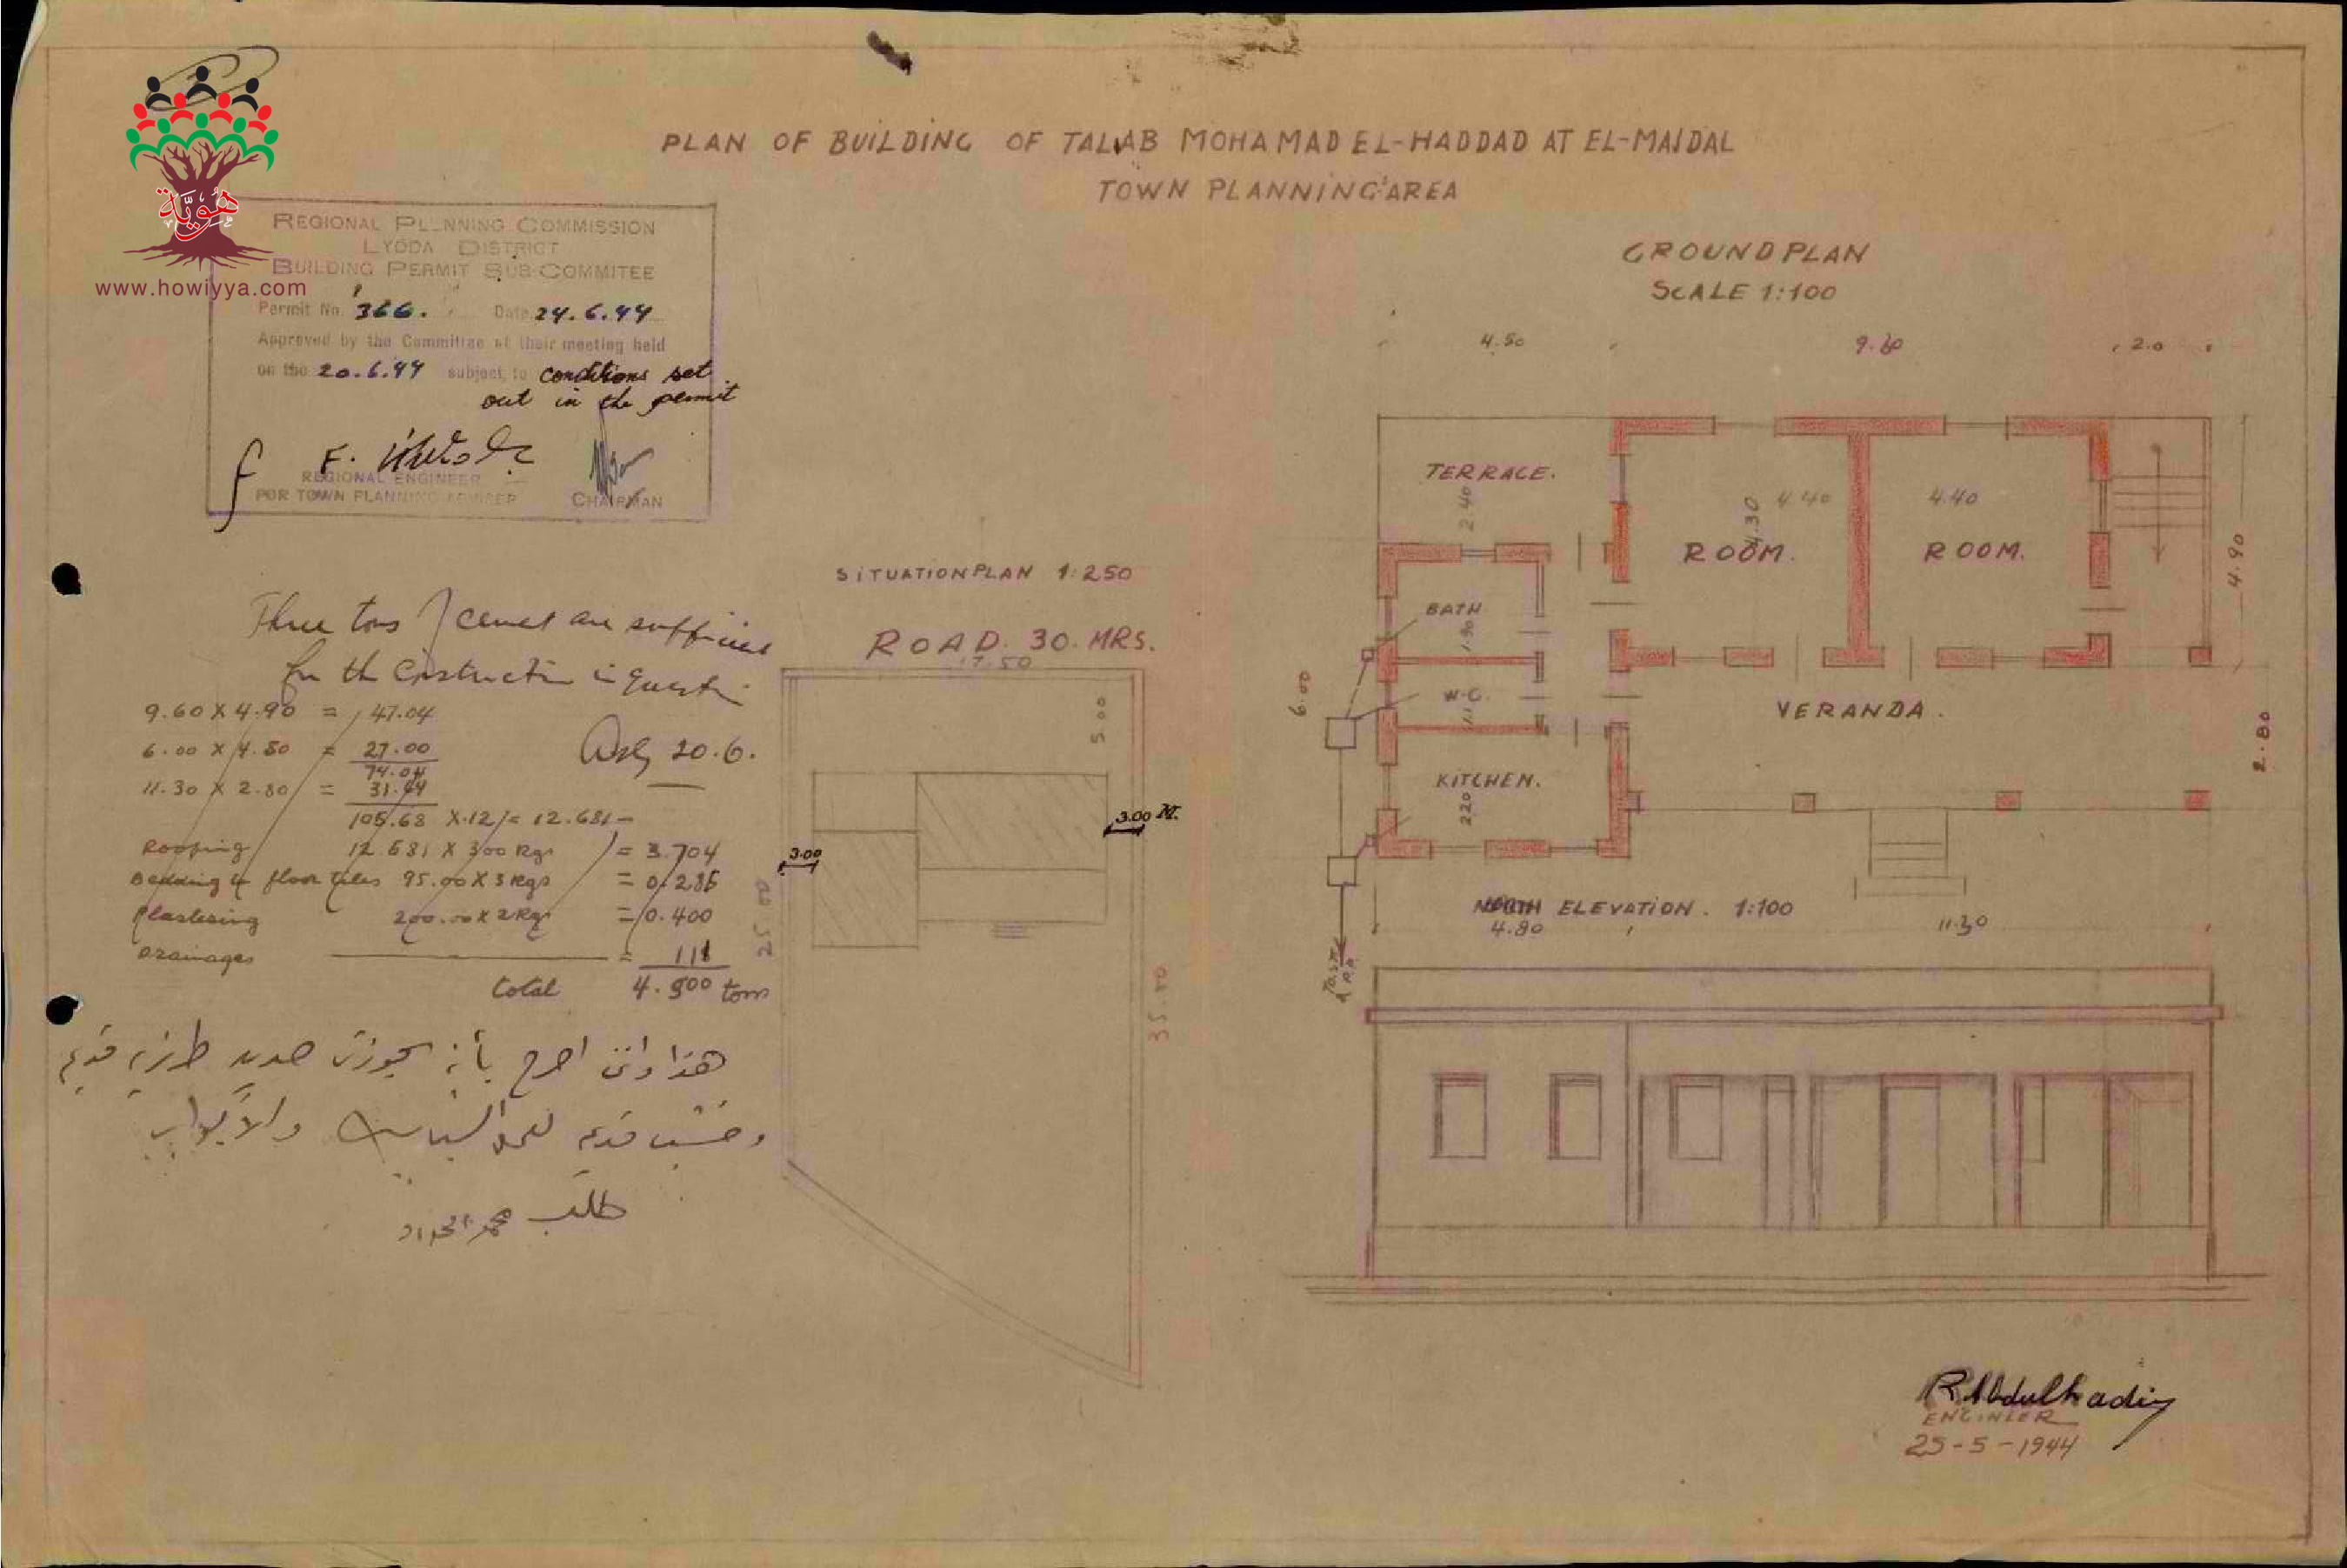 PLAN OF BUILDING OF TALAB MOHAMAD EL-HADDAD AT EL-MAJDAL
TOWN PLANNING AREA
هُوِيَّة
www.howiyya.com
REGIONAL PLANNING COMMISSION
LYDDA DISTRICT
BUILDING PERMIT SUB-COMMITEE
Permit No. 366. Date 24.6.44
Approved by the Committee at their meeting held
on the 20.6.44 subject to conditions set
out in the permit
F.
REGIONAL ENGINEER
FOR TOWN PLANNING ADVISER
CHAIRMAN
Three tons of cement are sufficient
for the construction in question
20.6.
9.60 X 4.90 = 47.04
6.00 X 4.50 = 27.00
74.04
11.30 X 2.80 = 31.64
105.68 X.12 = 12.681
Roofing 12.681 X 300 Kgs = 3.704
Bedding & floor tiles 95.00 X 3 Kgs = 0.285
Plastering 200.00 X 2 Kgs = 0.400
Drainages = 111
total 4.500 tons
هذا وانني اصرح بأنه بحوزتي حديد طرزينه قديم
وخشب قديم للشبابيك والأبواب
طلب محمد الحداد
SITUATION PLAN 1:250
ROAD. 30. MRS.
17.50
5.00
3.00 M.
3.00
25.00
35.00
GROUND PLAN
SCALE 1:100
4.50
9.60
2.0
TERRACE.
2.40
4.40
4.30
ROOM.
4.40
ROOM.
4.90
BATH
1.90
W.C.
1.1
6.00
VERANDA.
2.80
KITCHEN.
2.20
NORTH ELEVATION. 1:100
4.80
11.30
R.Abdulhadi
ENGINEER
25-5-1944